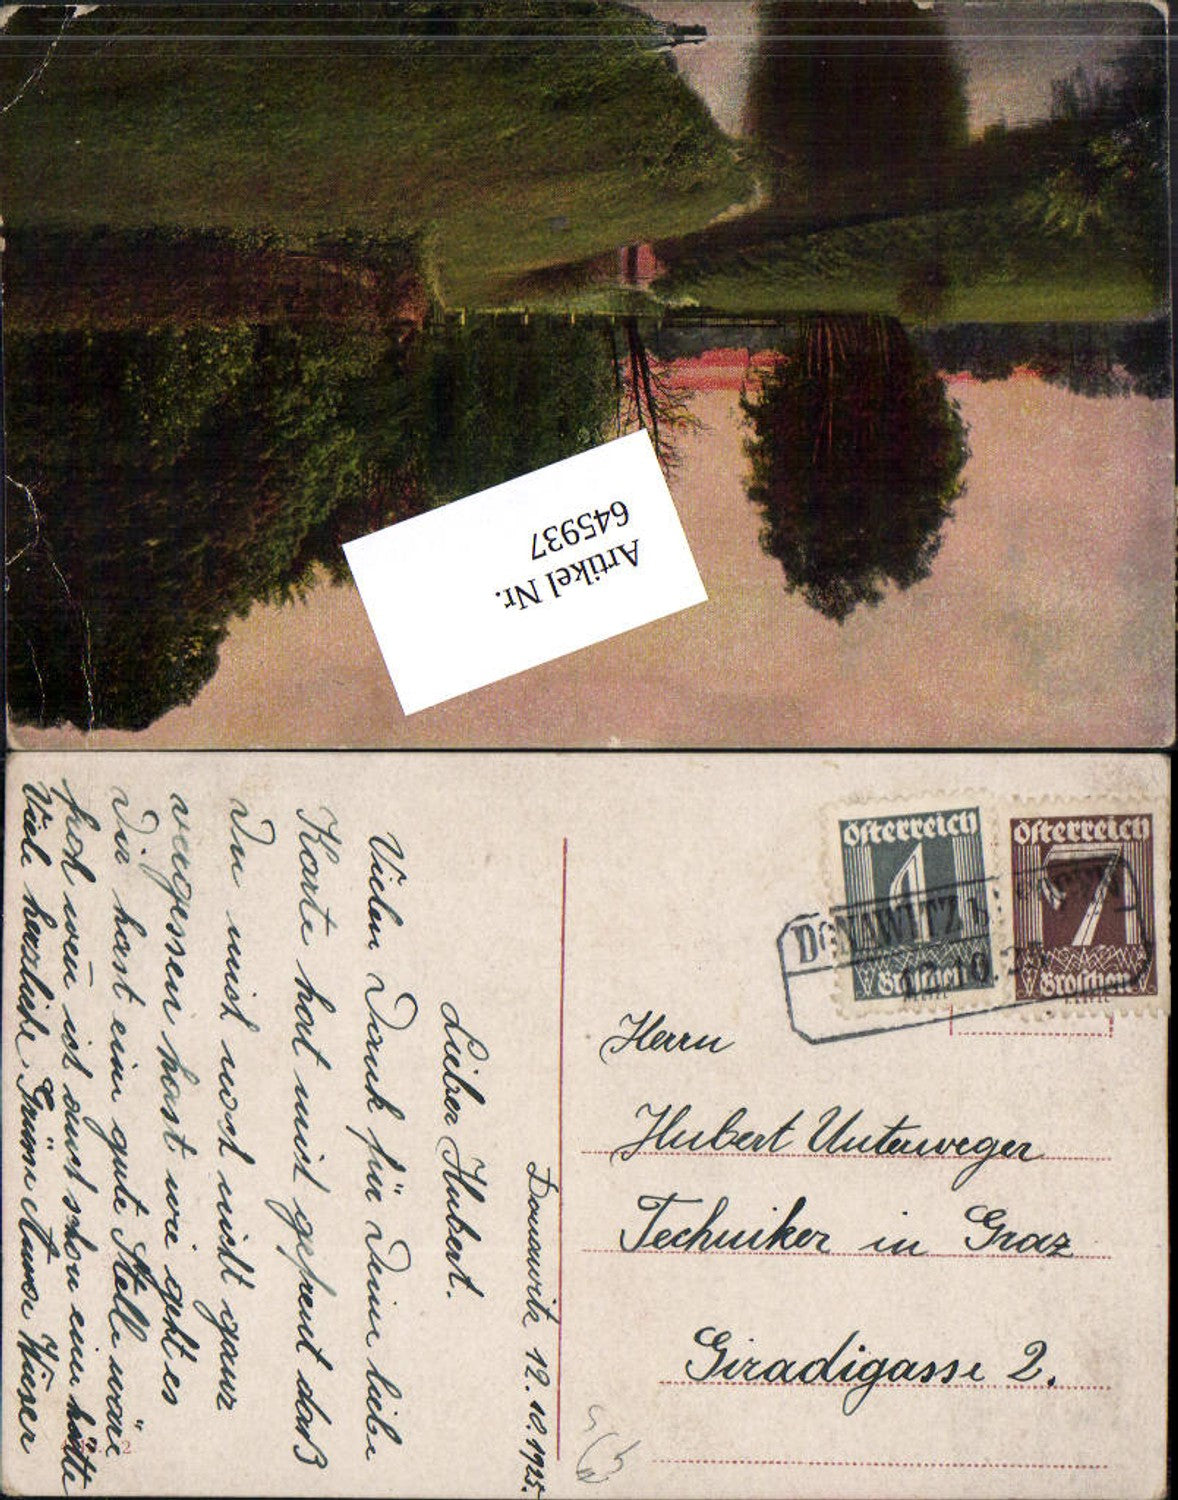 Artikel Nr.
645937
Österreich
1
Groschen
Österreich
7
Groschen
DONAWITZ b.
12.10.25
Donawitz 12.10.1925.
Lieber Hubert.
Vielen Dank für Deine liebe
Karte hat mich gefreut daß
Du mich noch nicht ganz
vergessen hast wie geht es
Dir hast eine gute Stelle wäre
froh wen ich auch schon eine hätte
Viele herzliche Grüße Anna Wieser
Herrn
Hubert Unterweger
Techniker in Graz
Giradigasse 2.